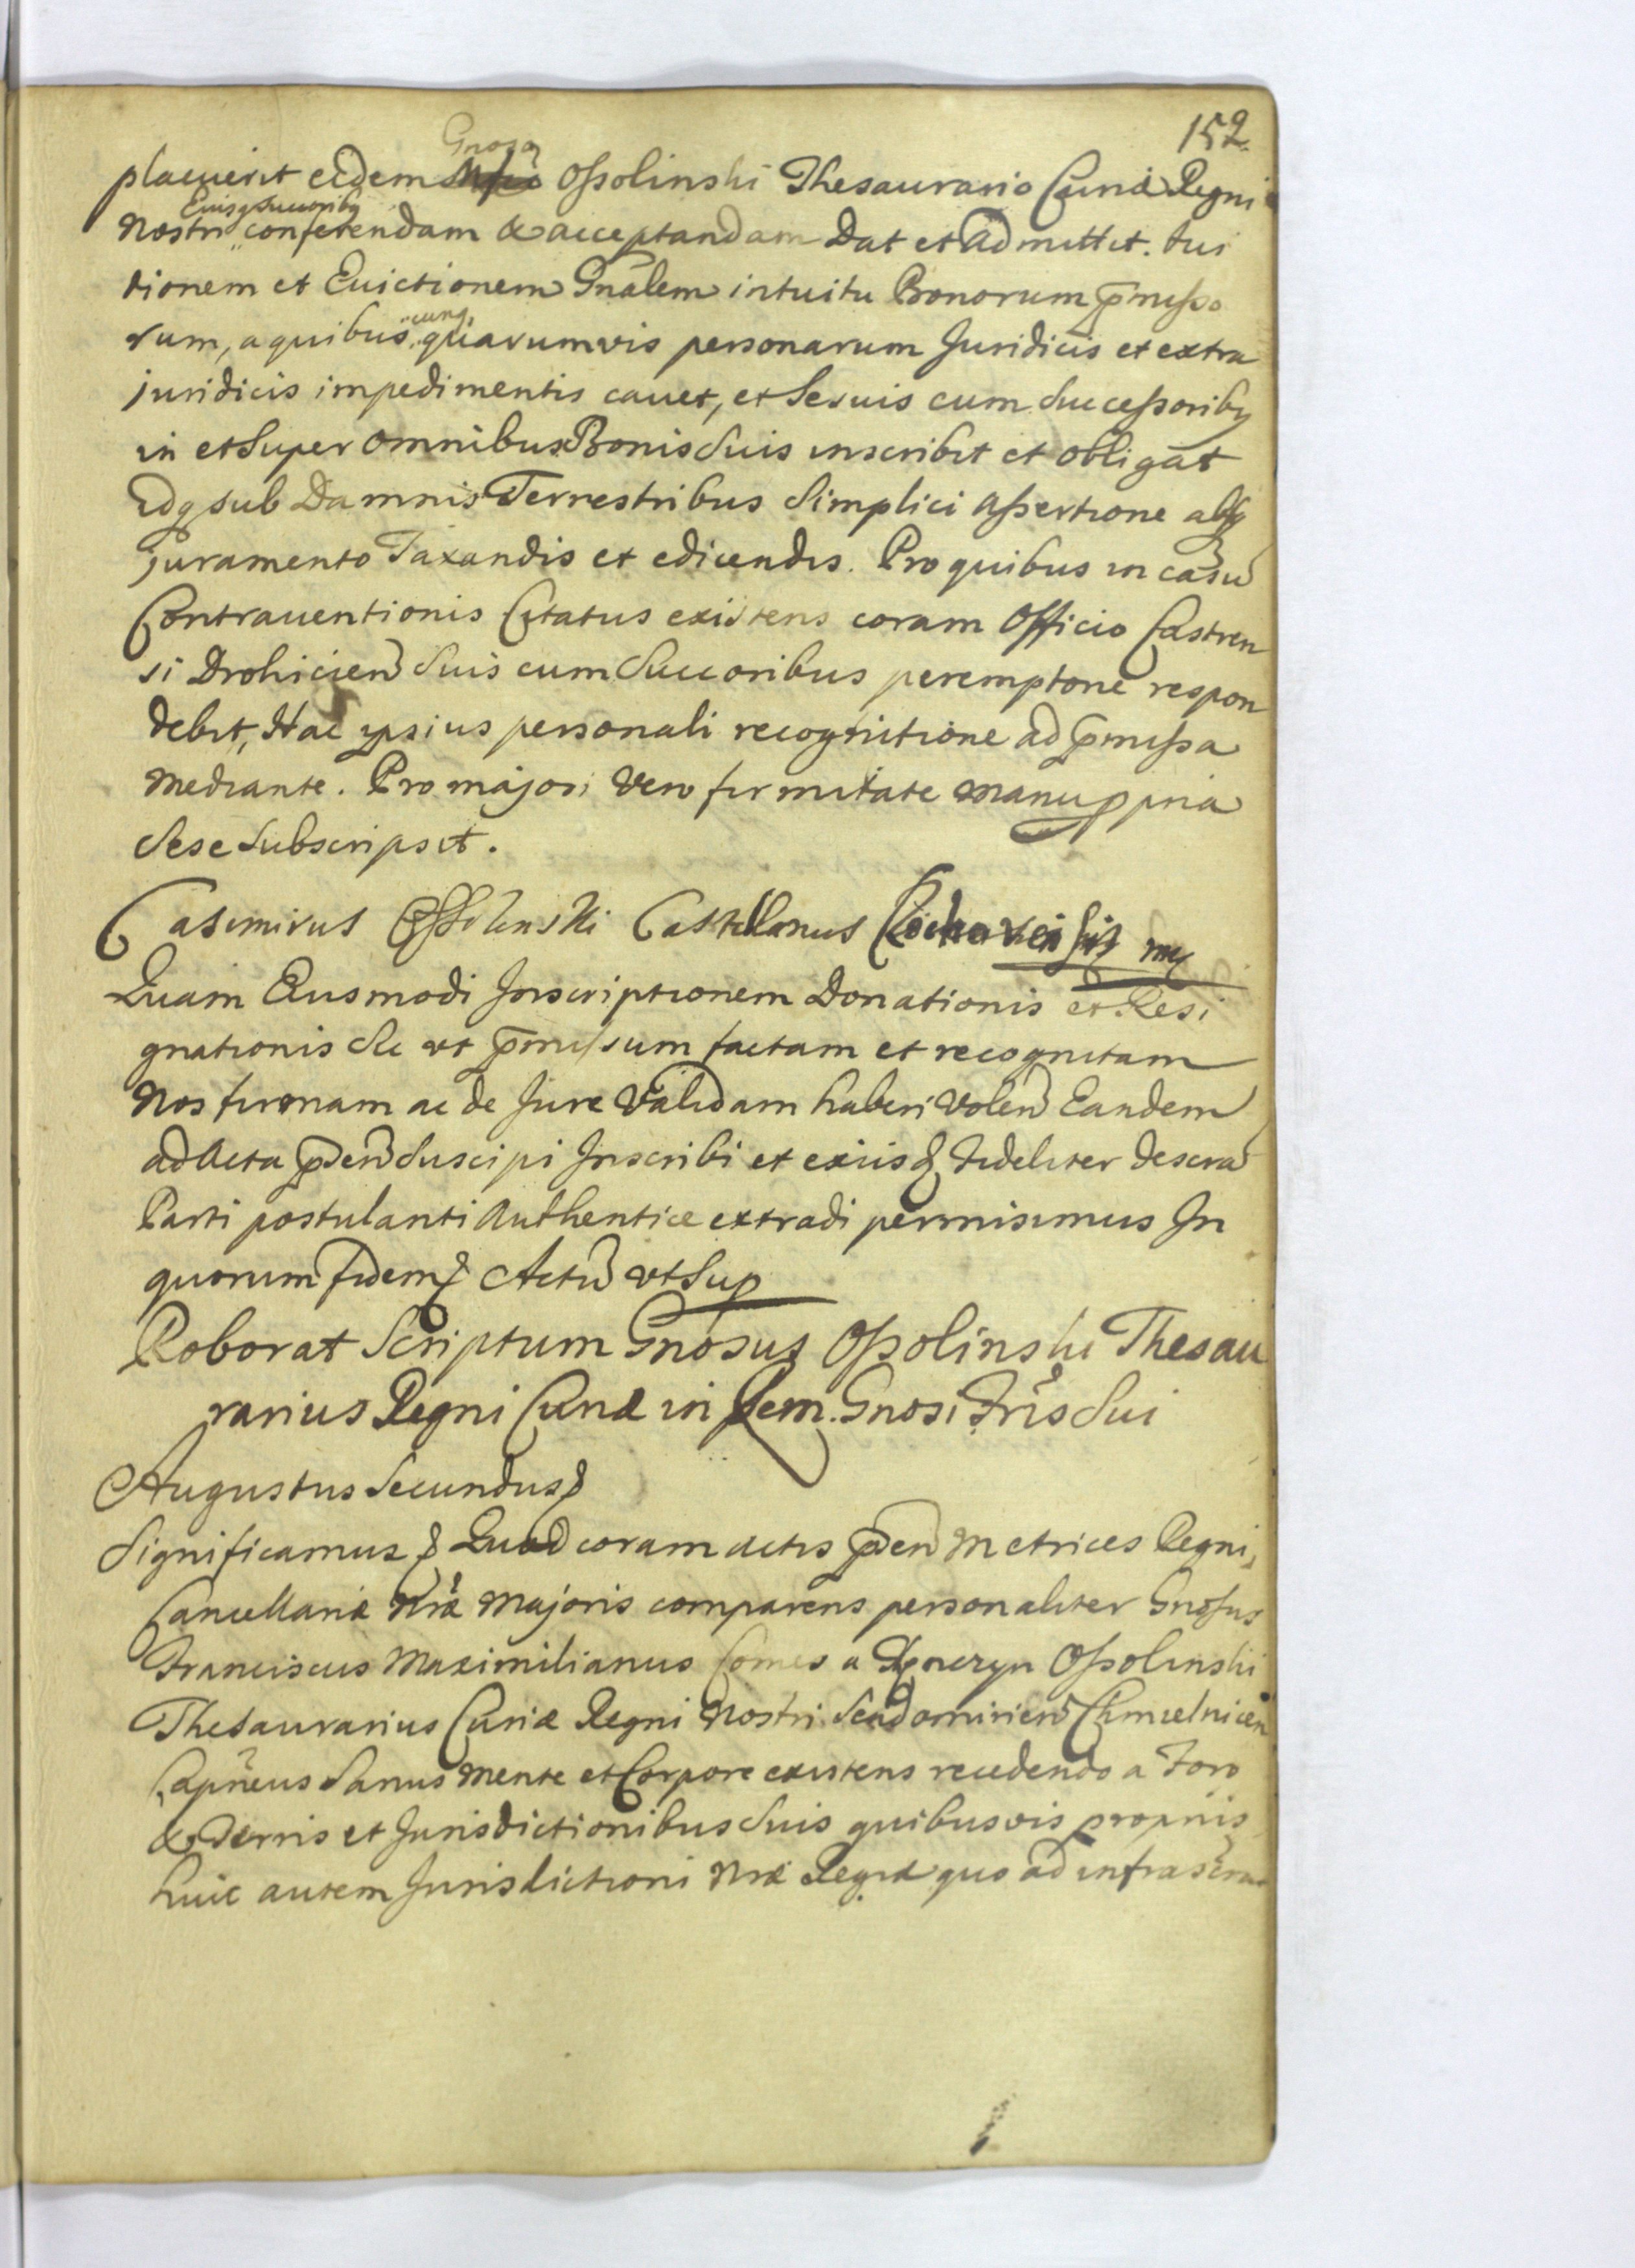 152.
placuerit eidem Gnoso Ossolinski Thesaurario Curiæ Regni
Nostri Eiusq Succoribq conferendam & acceptandam Dat et Admittit. tui
tionem et Evictionem Gnãlem intuitu Bonorum p̃misso
rum, a quibus cunq, quarumvis personarum Juridicis et extra
juridicis impedimentis cavet, et Se suis cum Successoribq
in et Super omnibus Bonis Suis inscribit et obligat
Idq sub Damnis Terrestribus Simplici Assertione absq
juramento Taxandis et edicendis. Pro quibus in casu
Contraventionis Citatus existens coram Officio Castren
si Drohicien̄ Suis cum Succoribus peremptorie respon
debit, Hac ipsius personali recognitione ad p̃missa
mediante. Pro majori vero firmitate manu ppria
Sese Subscripsit.
Casimirus Ossolinski Castellanus mp
Quam Eiusmodi Inscriptionem Donationis et Resi
gnationis Sic ut p̃missum factam et recognitam
Nos firmam ac de Jure Validam haberi Volen̄ Eandem
ad Acta p̃den̄ Suscipi Inscribi et ex iis & fideliter descra
Parti postulanti Authentice extradi permisimus In
quorum fidem & Actũ ut Sup
Roborat Scriptum Gnosus Ossolinski Thesau
rarius Regni Curiæ in rem Gnosi Fris Sui
Augustus Secundus &
Significamus & Quod coram actis p̃den̄ Metrices Regni,
Cancellariæ Nræ Majoris comparens personaliter Gnosus
Franciscus Maximilianus Comes a Tęnczyn Ossolinski
Thesaurarius Curiæ Regni Nostri Sendomirien̄ Chmielnicen
Capneus Sanus mente et Corpore existens recedendo a Foro
& Terris et Jurisdictionibus Suis quibusvis propriis
huic autem Jurisdictioni Nræ Regiæ quo ad infrascra